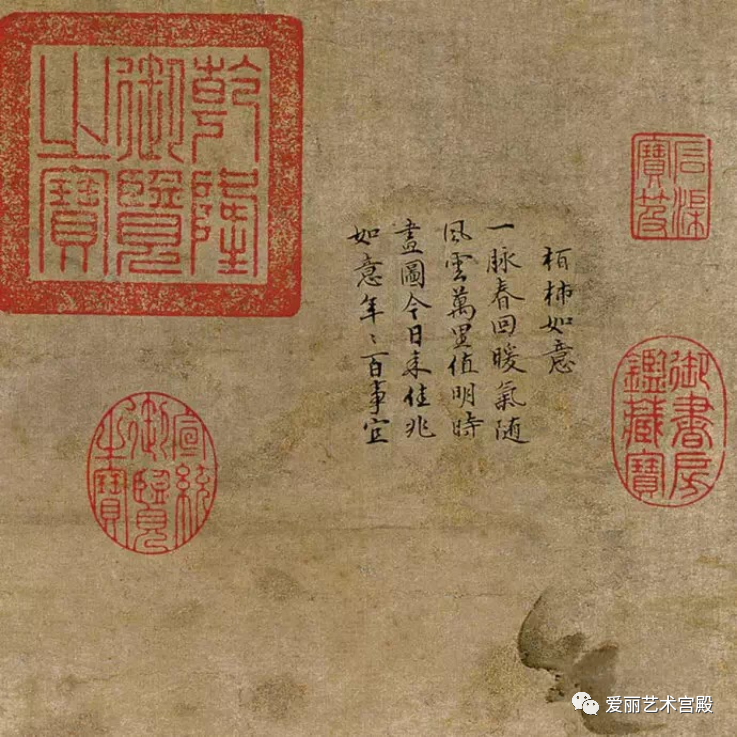 石渠
寶笈
御書房
鑑藏寶
栢柿如意
一脉春回暖氣随
風雲萬里值明時
畫圖今日来佳兆
如意年〻百事宜
乾隆
御覽
之寶
宣統
御覽
之寶
爱丽艺术宫殿